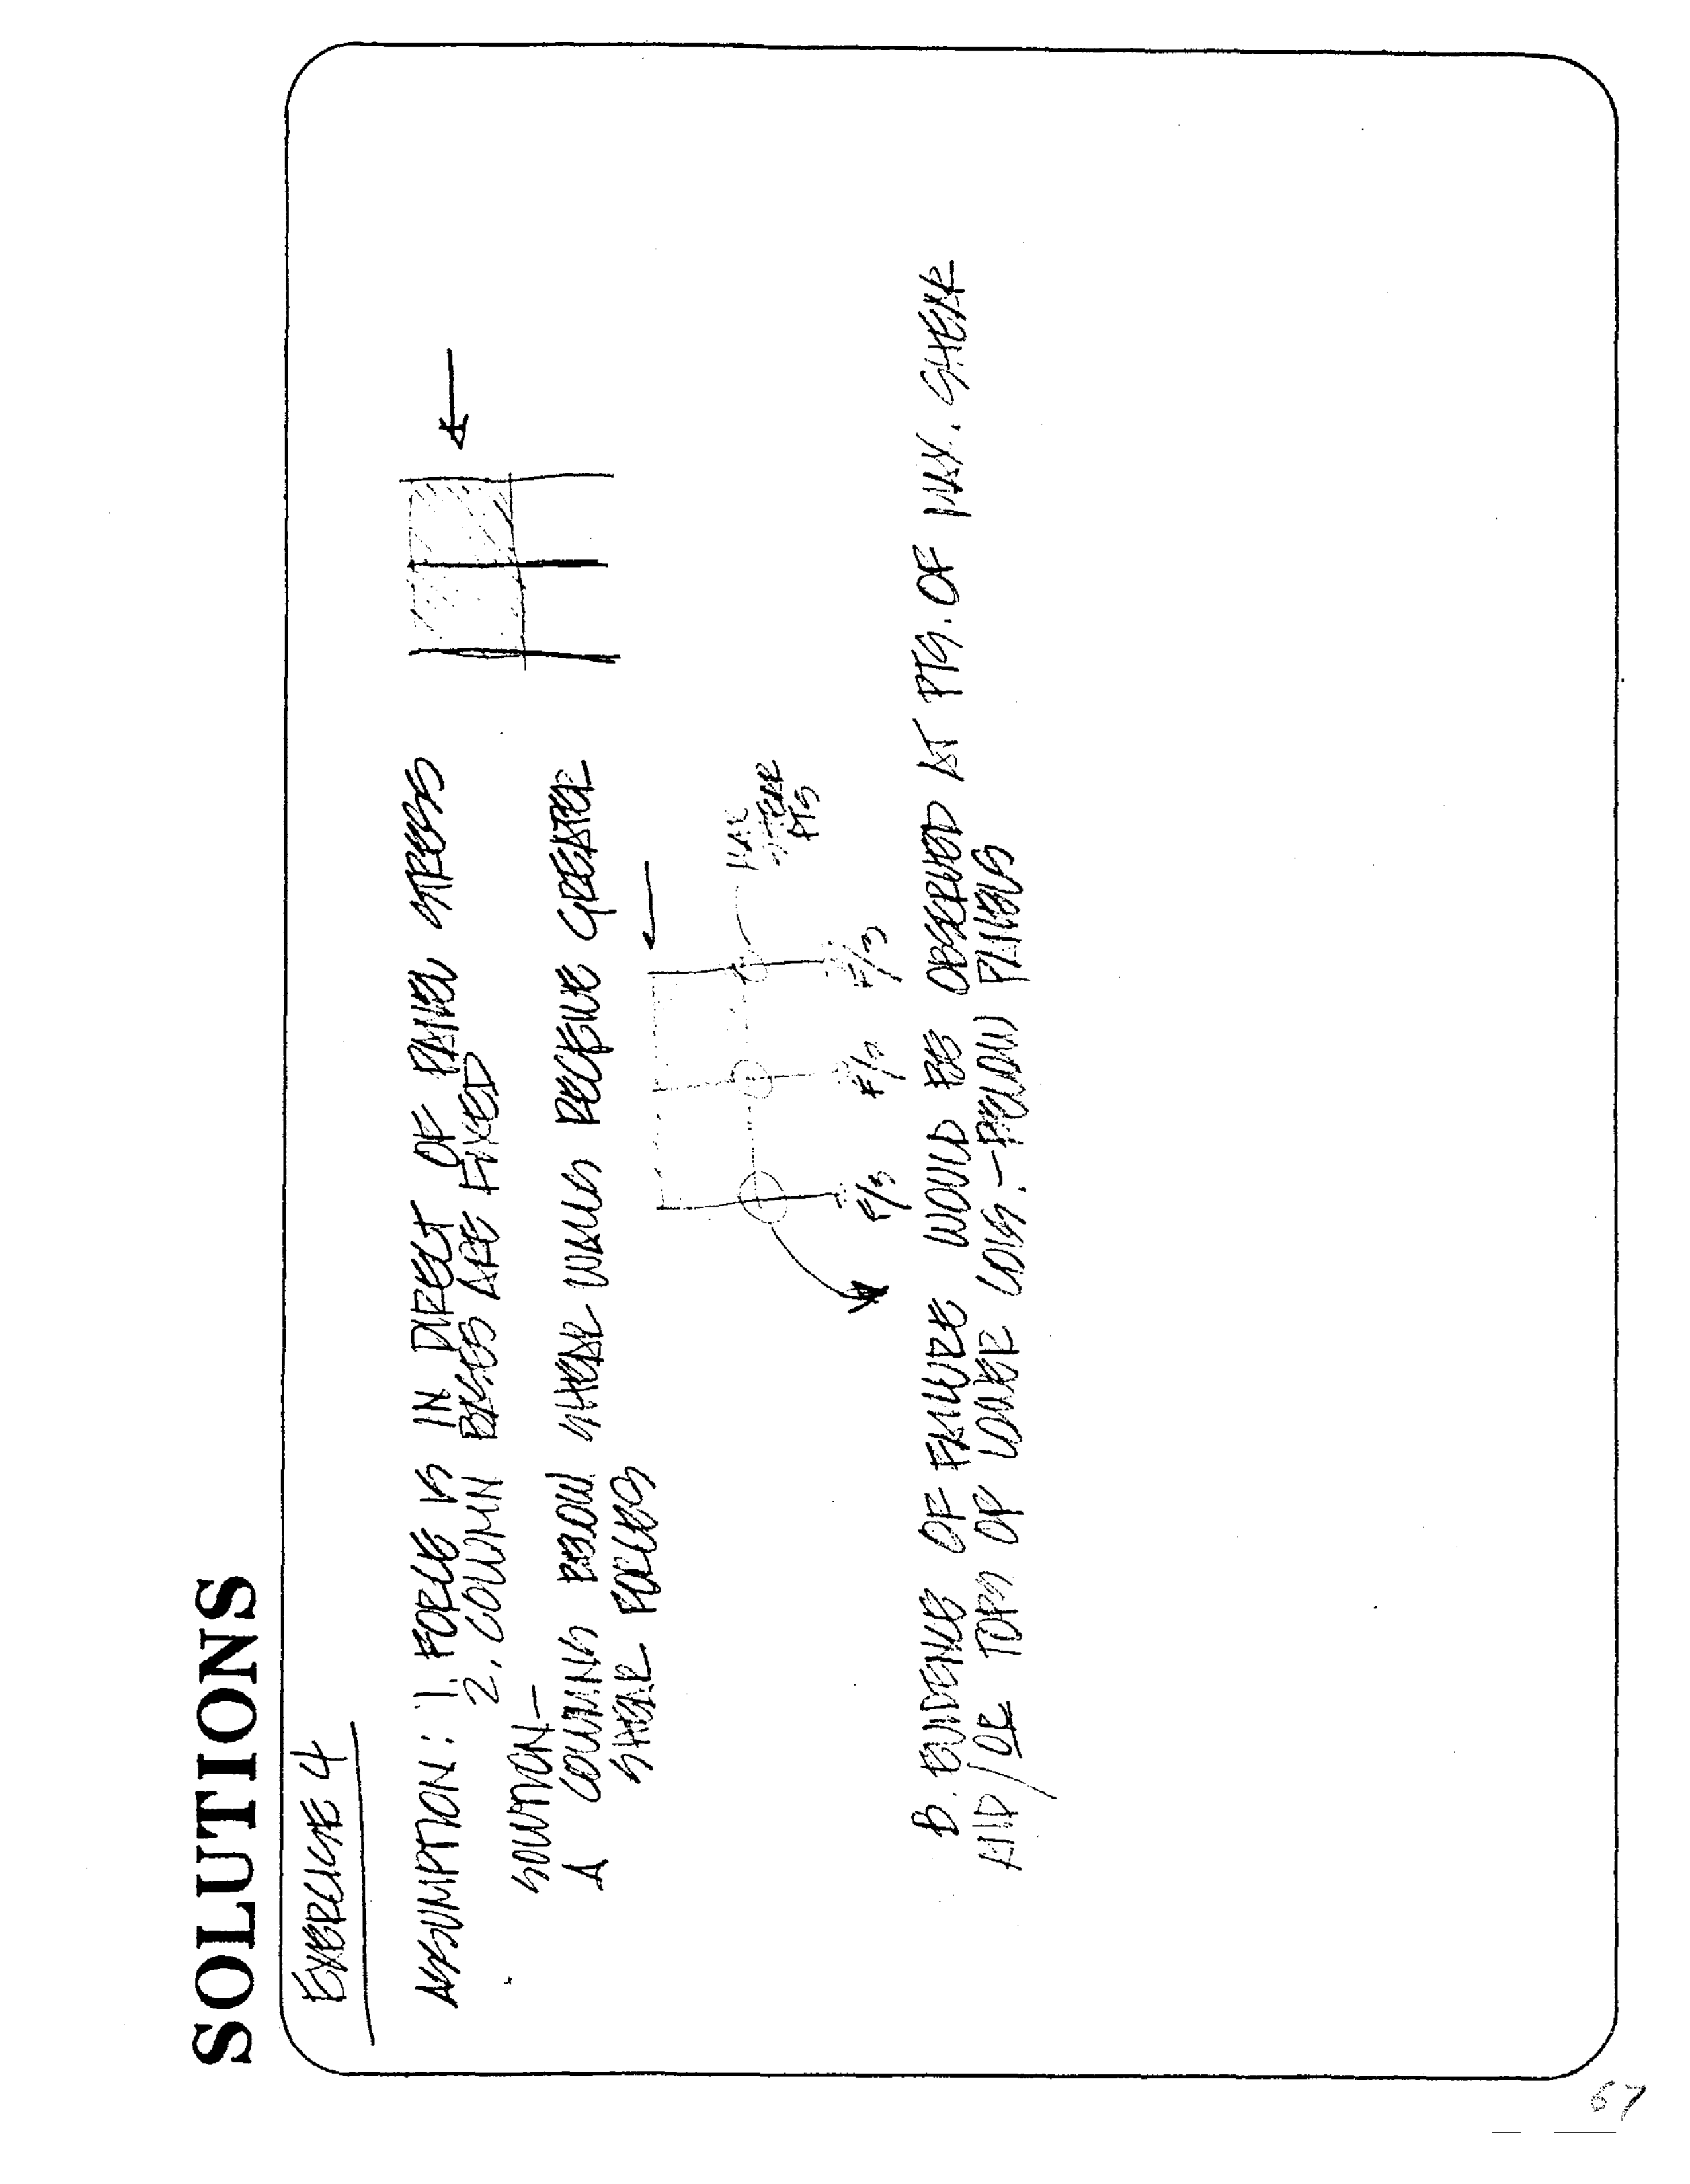 SOLUTIONS
EXERCISE 4
ASSUMPTION: 1. FORCE IS IN DIRECT OF PANEL STRESS
2. COLUMN BASES ARE FIXED
SOLUTION-
A COLUMNS BELOW SHEAR WALLS RECEIVE GREATER
SHEAR FORCES
MAX
SHEAR
PTS
F/3 F/3 F/3
B. EVIDENCE OF FAILURE WOULD BE OBSERVED AT PTS. OF MAX. SHEAR
AND/OR TOPS OF LOWER COLS. - BELOW PANELS
67